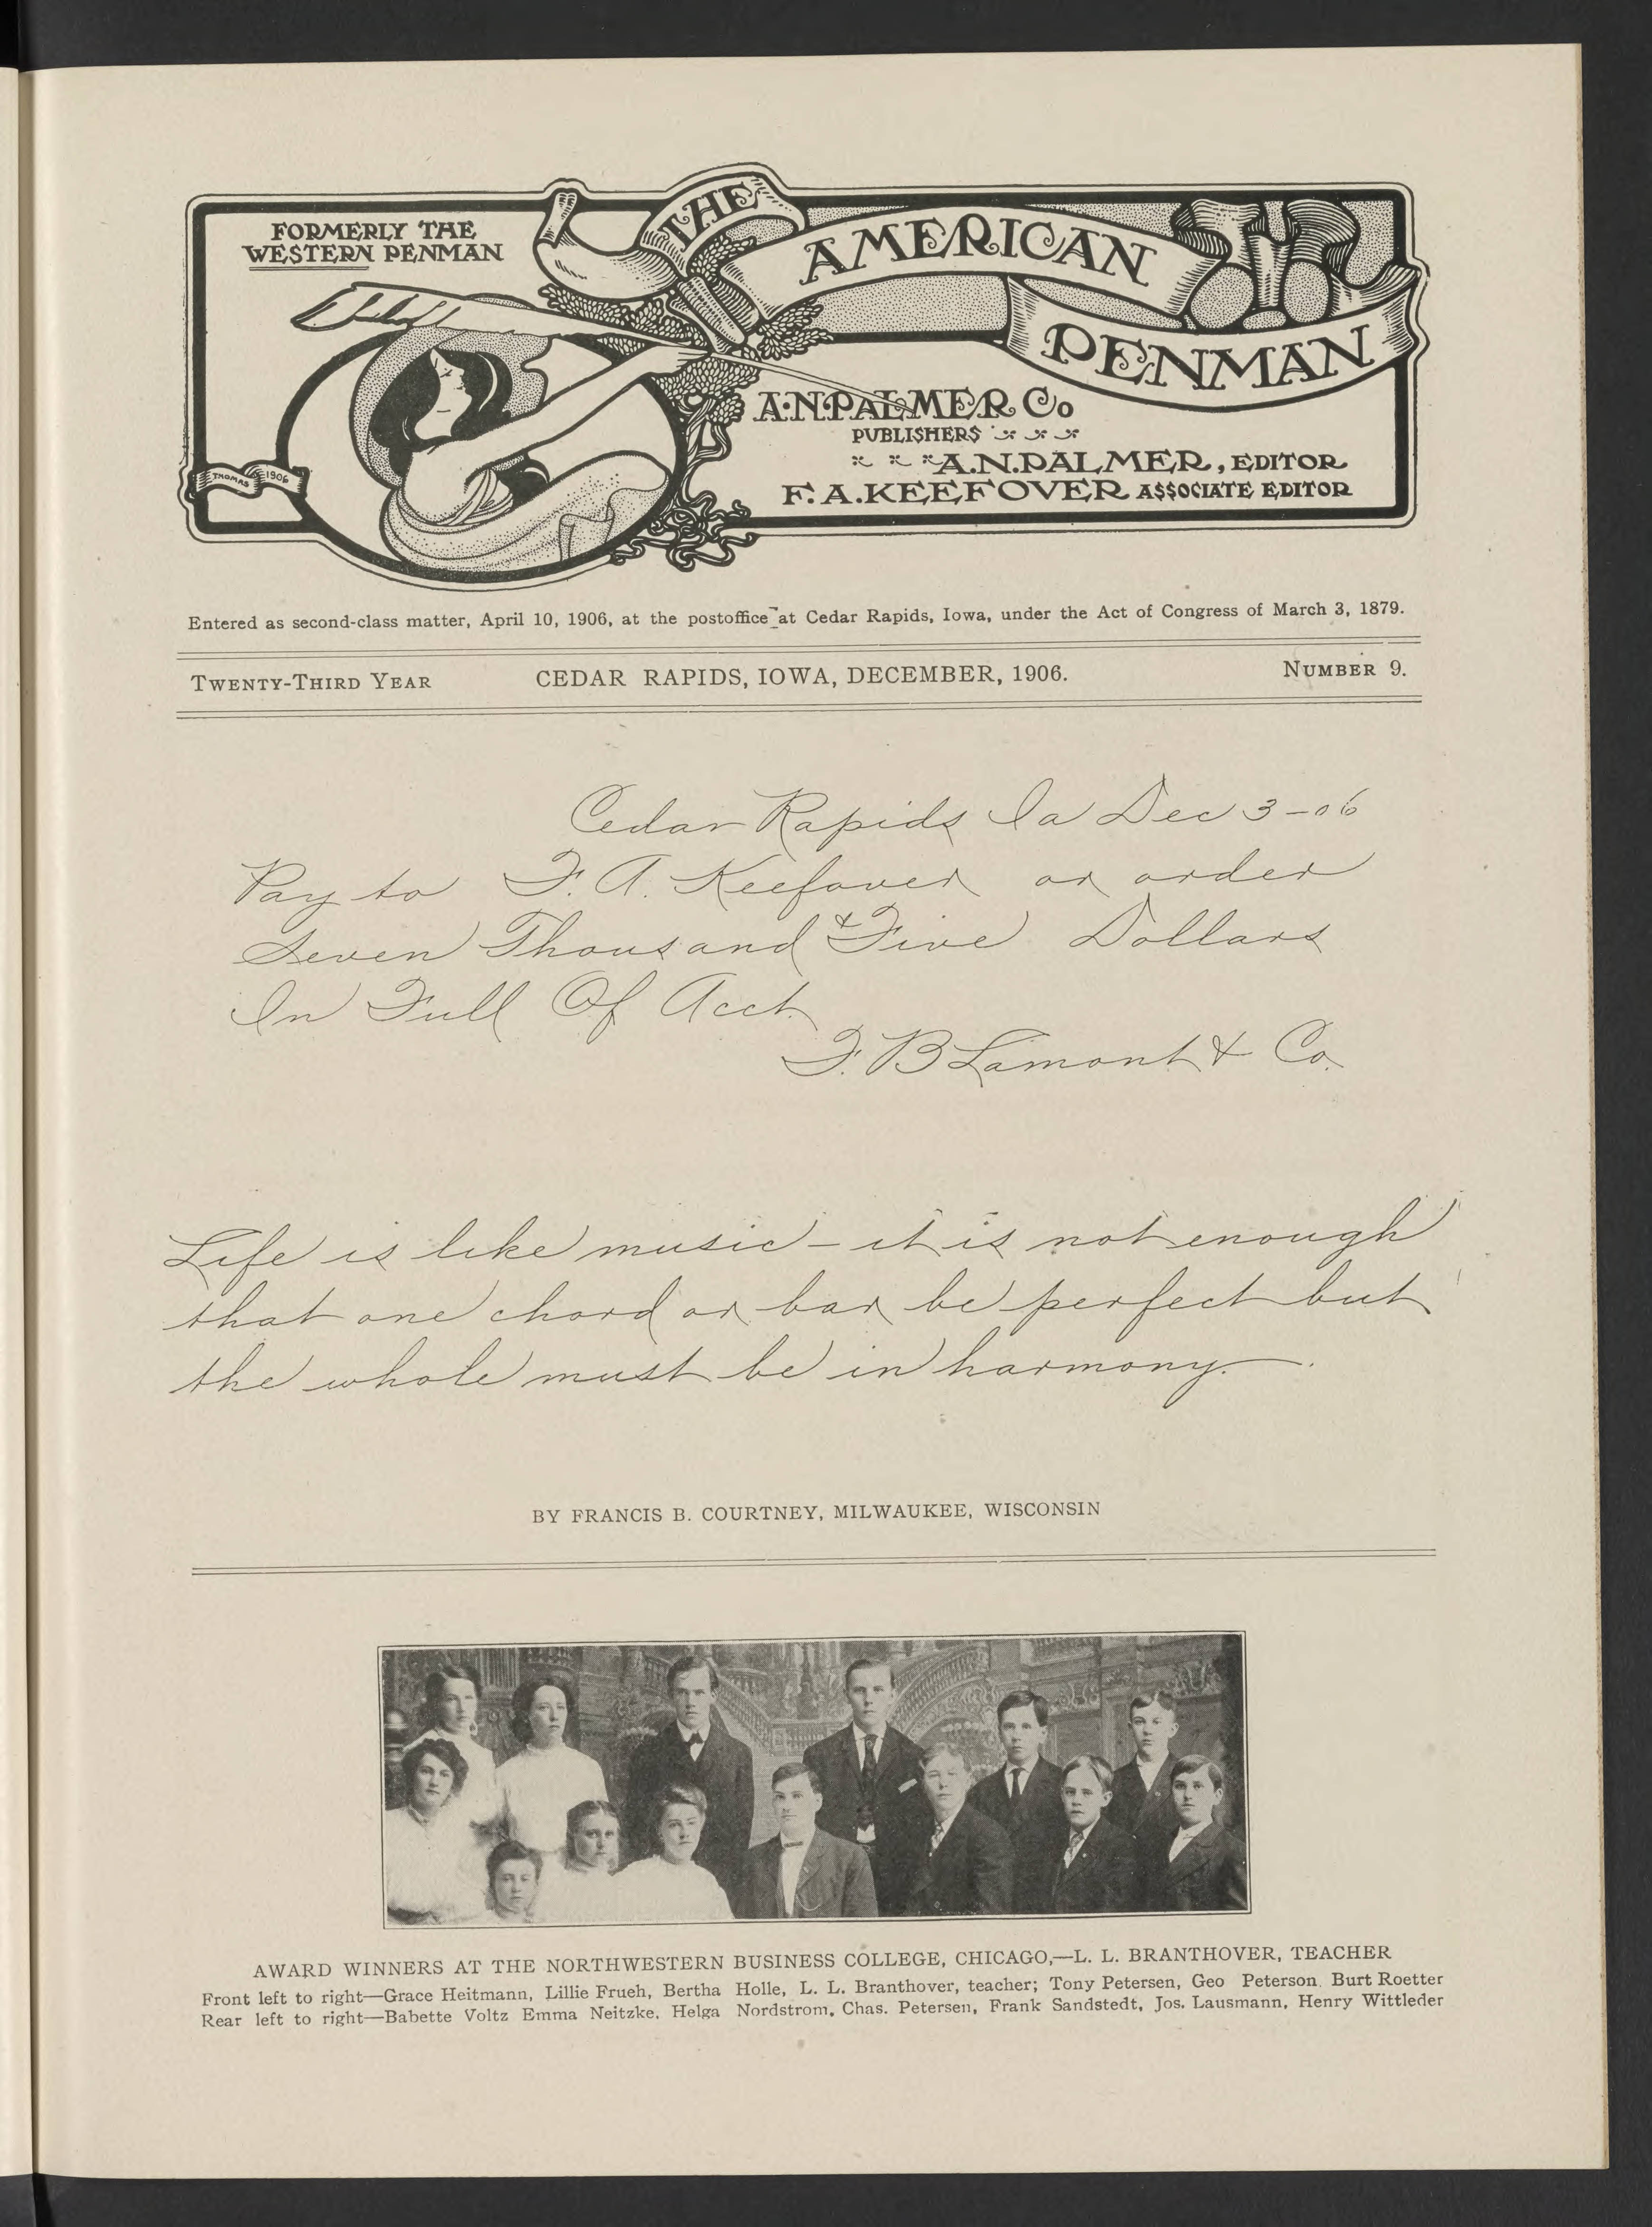 FORMERLY THE
WESTERN PENMAN
THE
AMERICAN
PENMAN
A.N.PALMER Co
PUBLISHERS
A.N.PALMER, EDITOR
F.A.KEEFOVER ASSOCIATE EDITOR
THOMAS 1906
Entered as second-class matter, April 10, 1906, at the postoffice at Cedar Rapids, Iowa, under the Act of Congress of March 3, 1879.
TWENTY-THIRD YEAR CEDAR RAPIDS, IOWA, DECEMBER, 1906. NUMBER 9.
Cedar Rapids Ia Dec 3-06
Pay to F. A. Keefover or order
Seven Thousand & Five Dollars
In Full Of Acct.
F. B Lamont & Co.
Life is like music - it is not enough
that one chord or bar be perfect but
the whole must be in harmony.
BY FRANCIS B. COURTNEY, MILWAUKEE, WISCONSIN
AWARD WINNERS AT THE NORTHWESTERN BUSINESS COLLEGE, CHICAGO,—L. L. BRANTHOVER, TEACHER
Front left to right—Grace Heitmann, Lillie Frueh, Bertha Holle, L. L. Branthover, teacher; Tony Petersen, Geo Peterson. Burt Roetter
Rear left to right—Babette Voltz Emma Neitzke, Helga Nordstrom, Chas. Petersen, Frank Sandstedt, Jos. Lausmann, Henry Wittleder